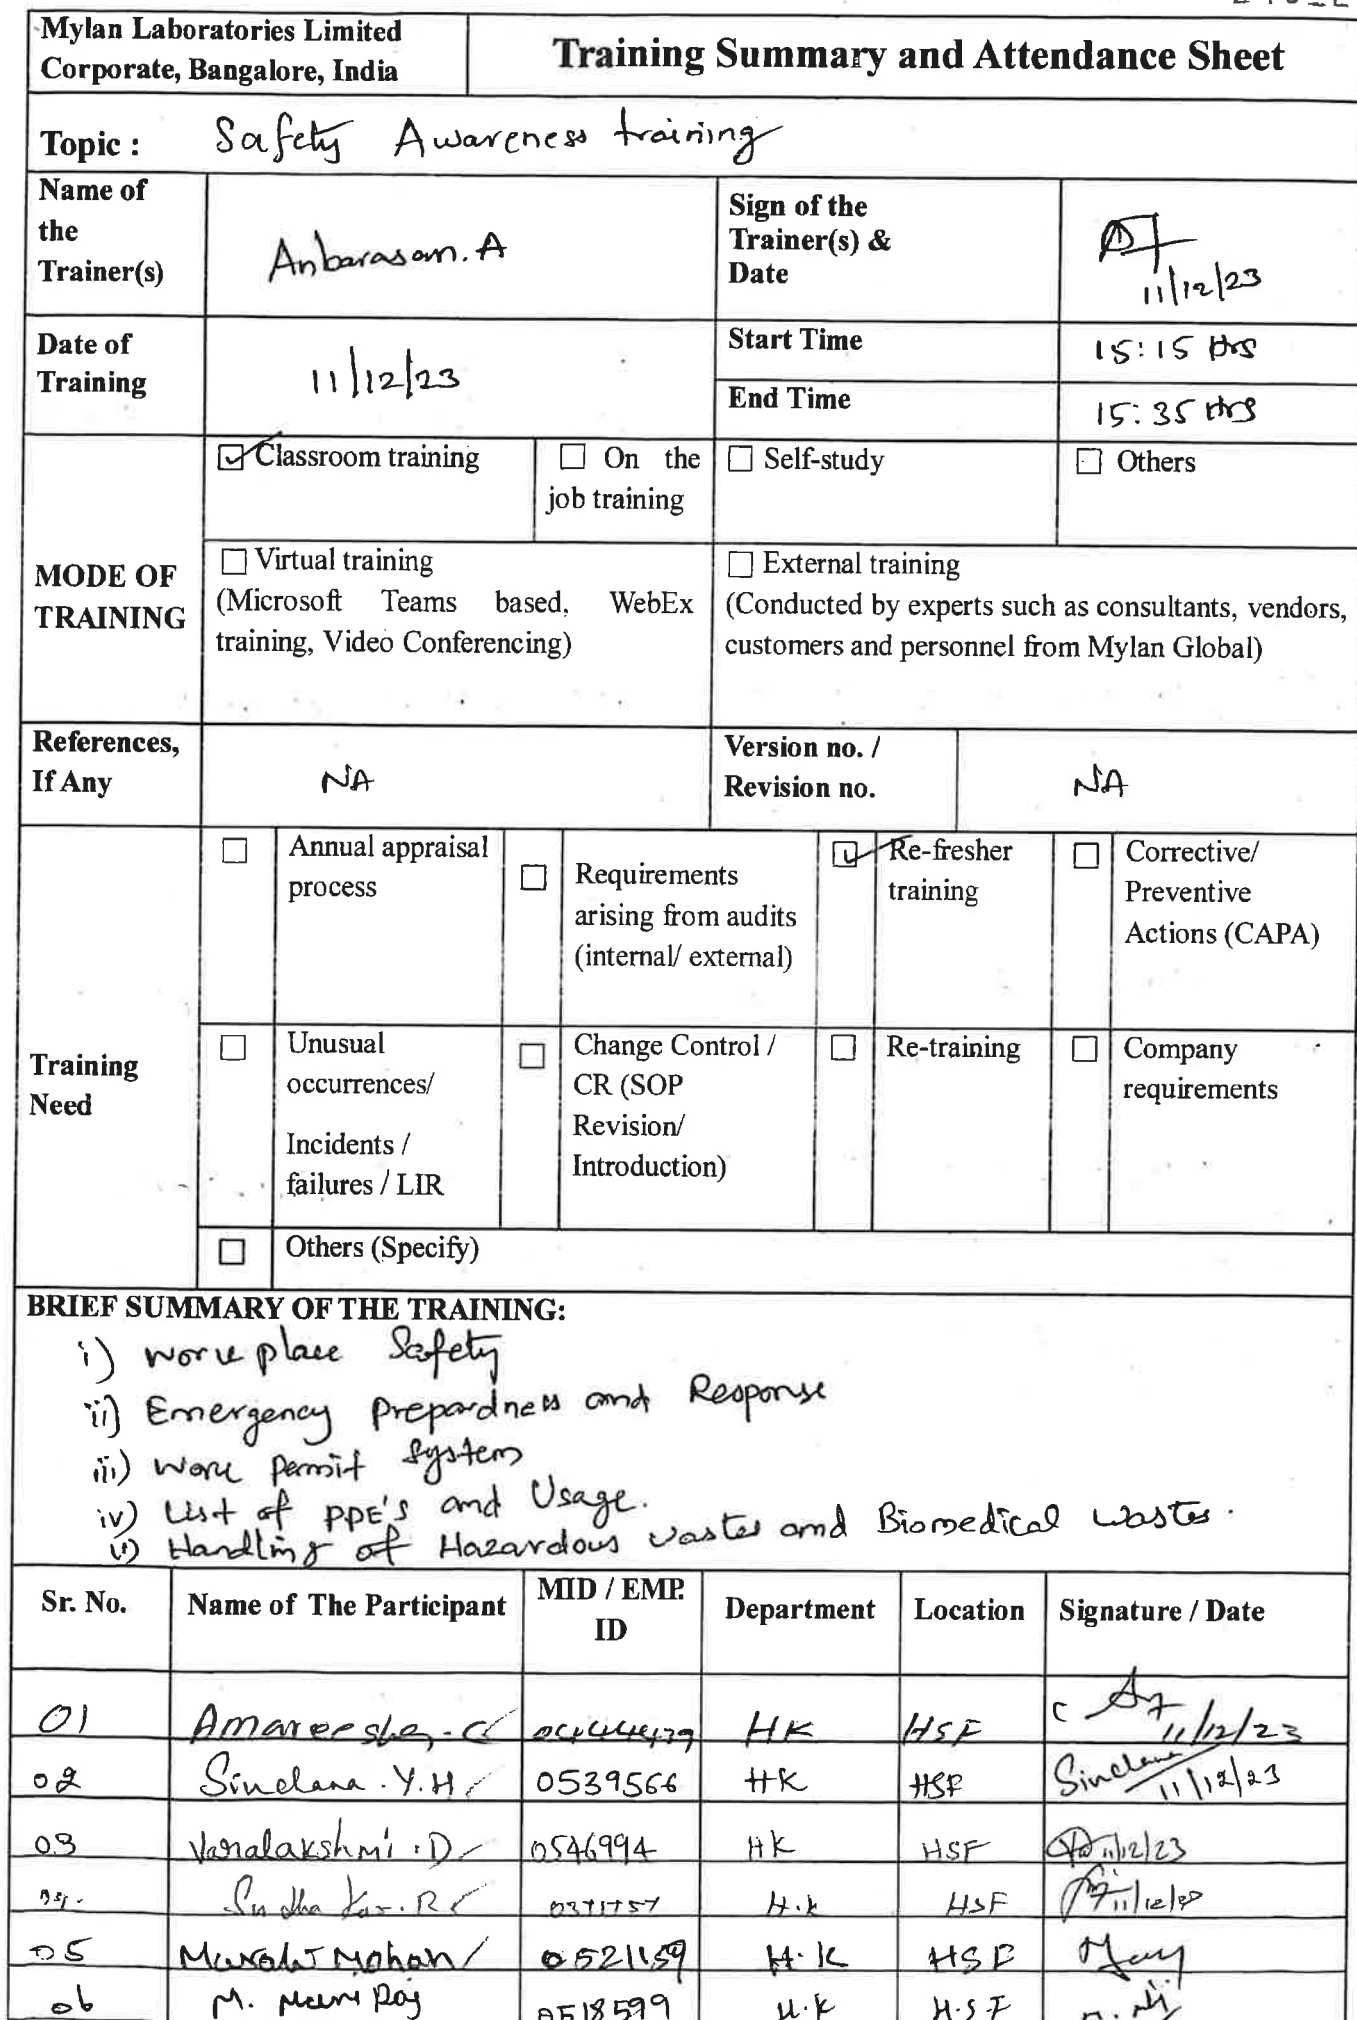 Mylan Laboratories Limited
Corporate, Bangalore, India
Training Summary and Attendance Sheet
Topic : Safety Awareness training
Name of
the
Trainer(s)
Anbarasan. A
Sign of the
Trainer(s) &
Date
11/12/23
Date of
Training
11/12/23
Start Time
15:15 Hrs
End Time
15:35 Hrs
MODE OF
TRAINING
Classroom training
On the
job training
Self-study
Others
Virtual training
(Microsoft Teams based, WebEx
training, Video Conferencing)
External training
(Conducted by experts such as consultants, vendors,
customers and personnel from Mylan Global)
References,
If Any
NA
Version no. /
Revision no.
NA
Training
Need
Annual appraisal
process
Requirements
arising from audits
(internal/ external)
Re-fresher
training
Corrective/
Preventive
Actions (CAPA)
Unusual
occurrences/
Incidents /
failures / LIR
Change Control /
CR (SOP
Revision/
Introduction)
Re-training
Company
requirements
Others (Specify)
BRIEF SUMMARY OF THE TRAINING:
i) Work place Safety
ii) Emergency Prepardness and Response
iii) Work permit System
iv) List of PPE'S and Usage.
v) Handling of Hazardous wastes and Biomedical wastes.
Sr. No. Name of The Participant MID / EMP. ID Department Location Signature / Date
01 Amareesha. C HK HSF 11/12/23
02 Sinchana. Y.H 0539566 HK HSF Sinchana 11/12/23
03 Varalakshmi. D 0546994 HK HSF 11/12/23
Sudhakar. R H.K HSF
05 Murali Mohan 0521159 H.K HSF
06 M. Muni Raj 0518599 H.K H.S.F